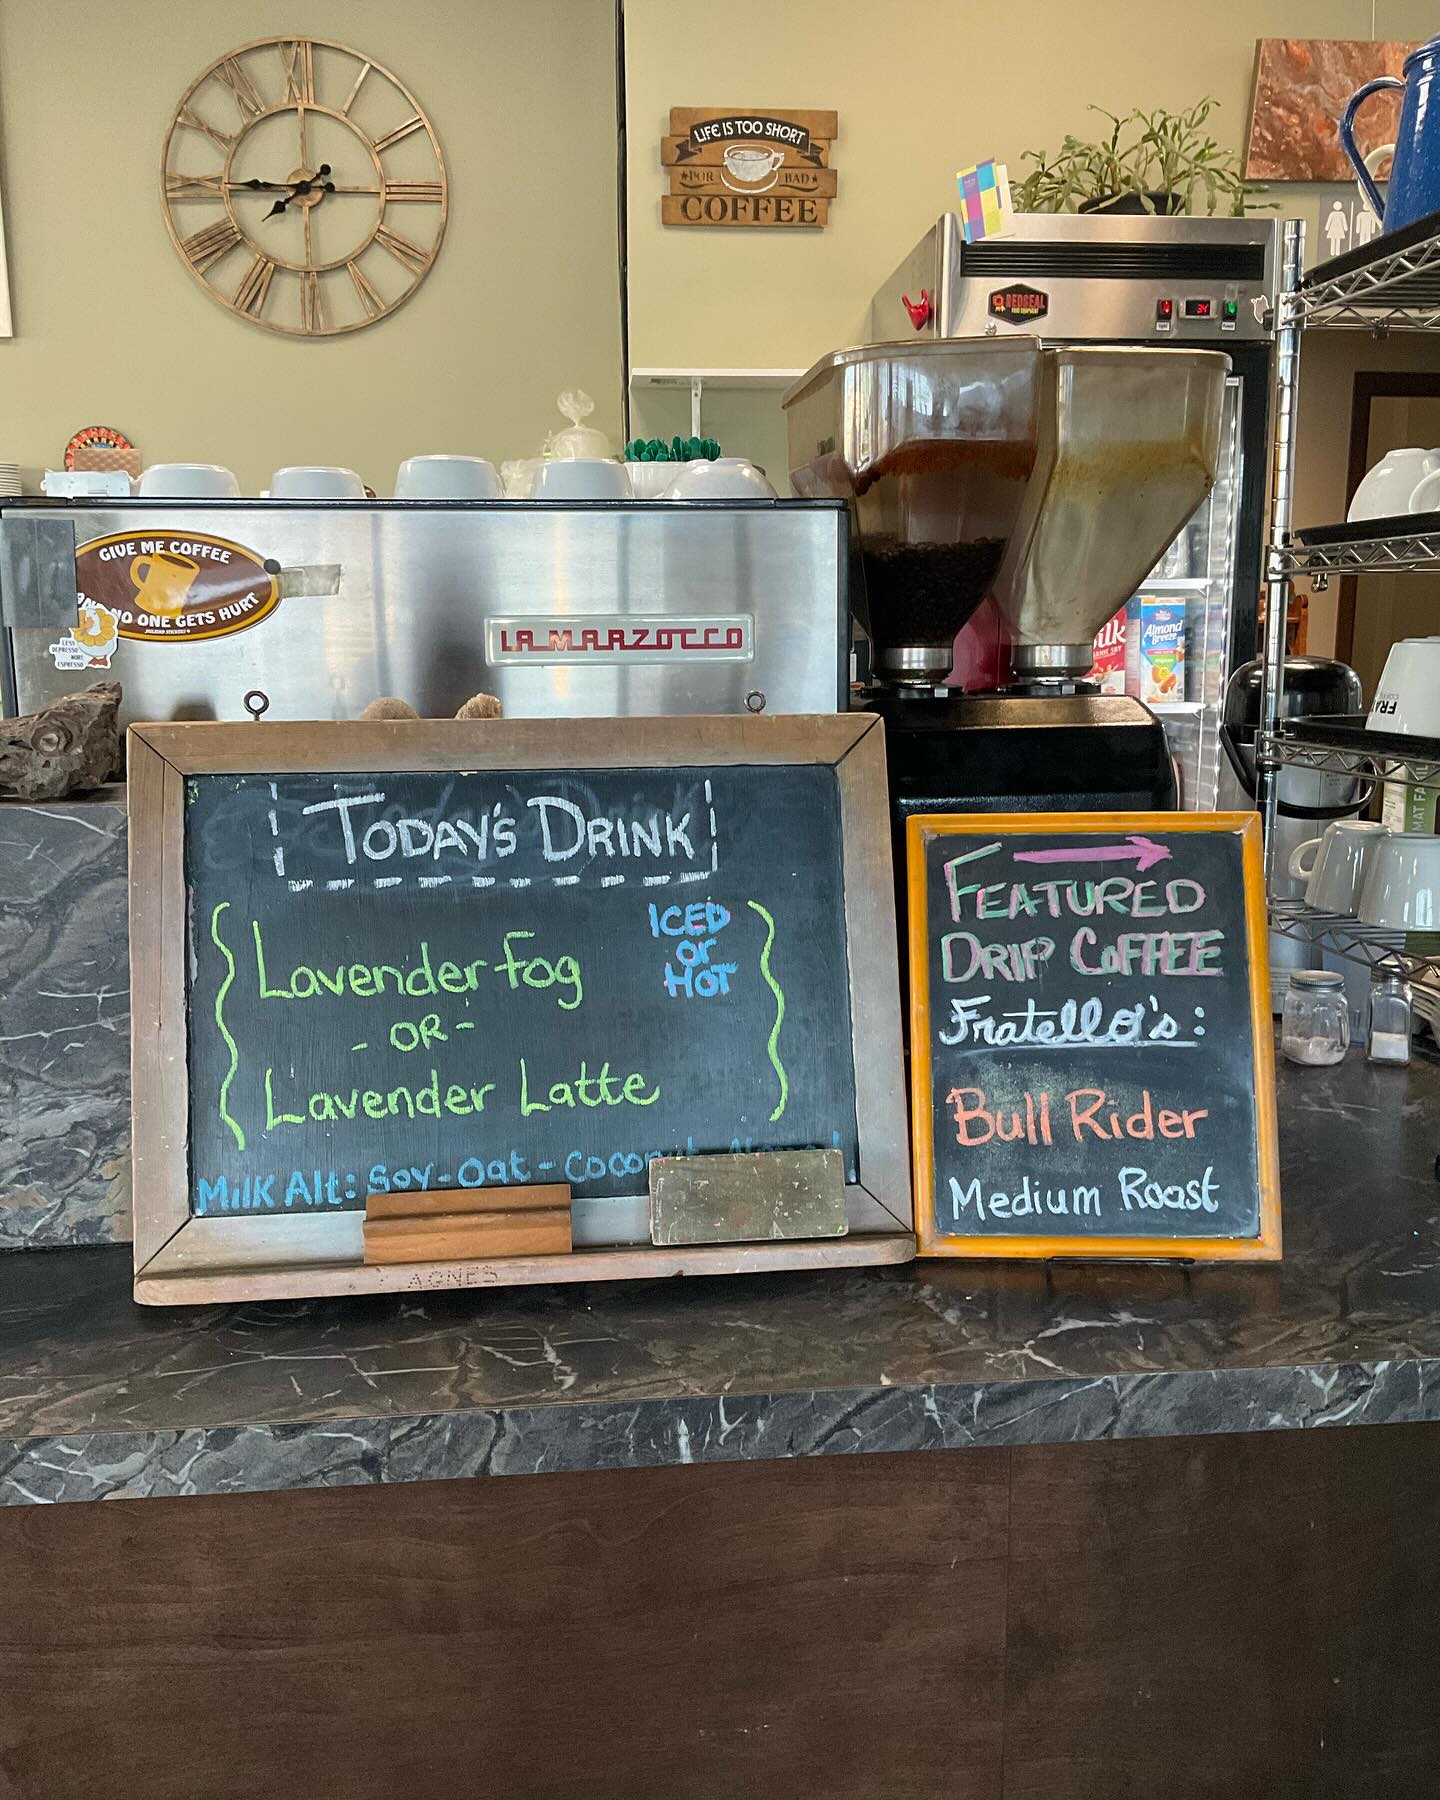 LIFE IS TOO SHORT
FOR BAD
COFFEE
REDSEAL
34
GIVE ME COFFEE
AND NO ONE GETS HURT
LESS
DEPRESSO
MORE
ESPRESSO
LA MARZOCCO
Silk
Almond
Breeze
TODAY'S DRINK
Lavender Fog
ICED
or
HOT
- OR -
Lavender Latte
Milk Alt: Soy - Oat - Coconut
AGNES
FEATURED
DRIP COFFEE
Fratello's:
Bull Rider
Medium Roast